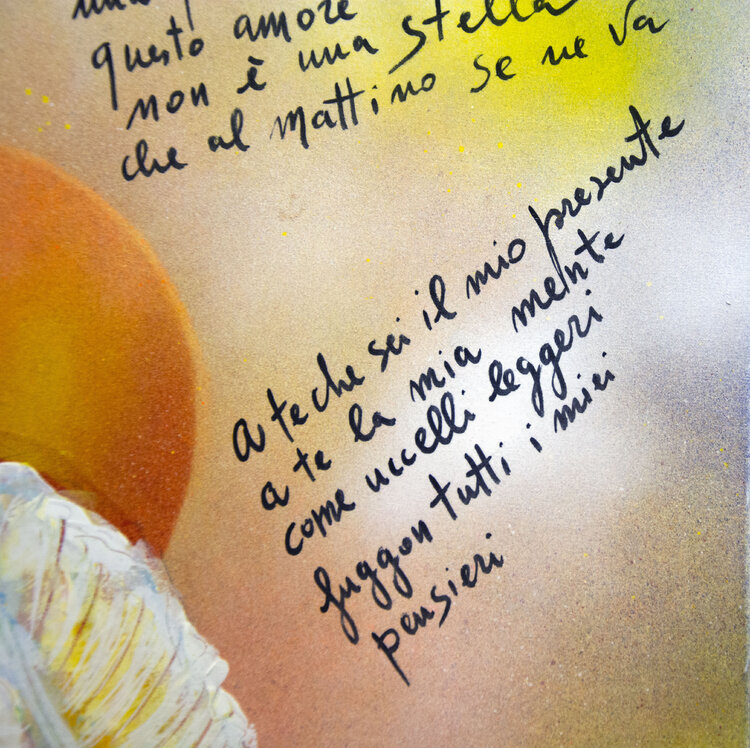 questo amore
non è una stella
che al mattino se ne va
a te che sei il mio presente
a te la mia mente
come uccelli leggeri
fuggon tutti i miei
pensieri